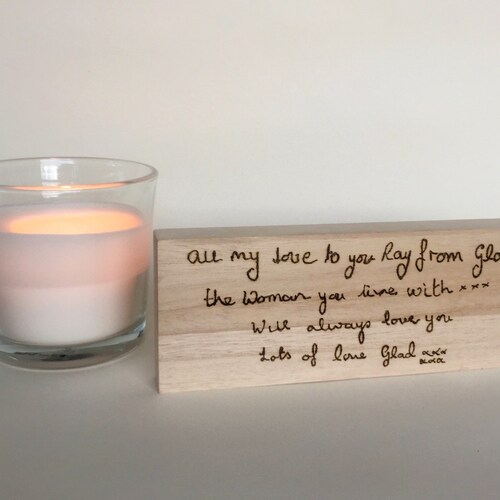 all my love to you Ray from Glad
the Woman you live with xxx
Will always love you
Lots of love Glad xxx
xxx